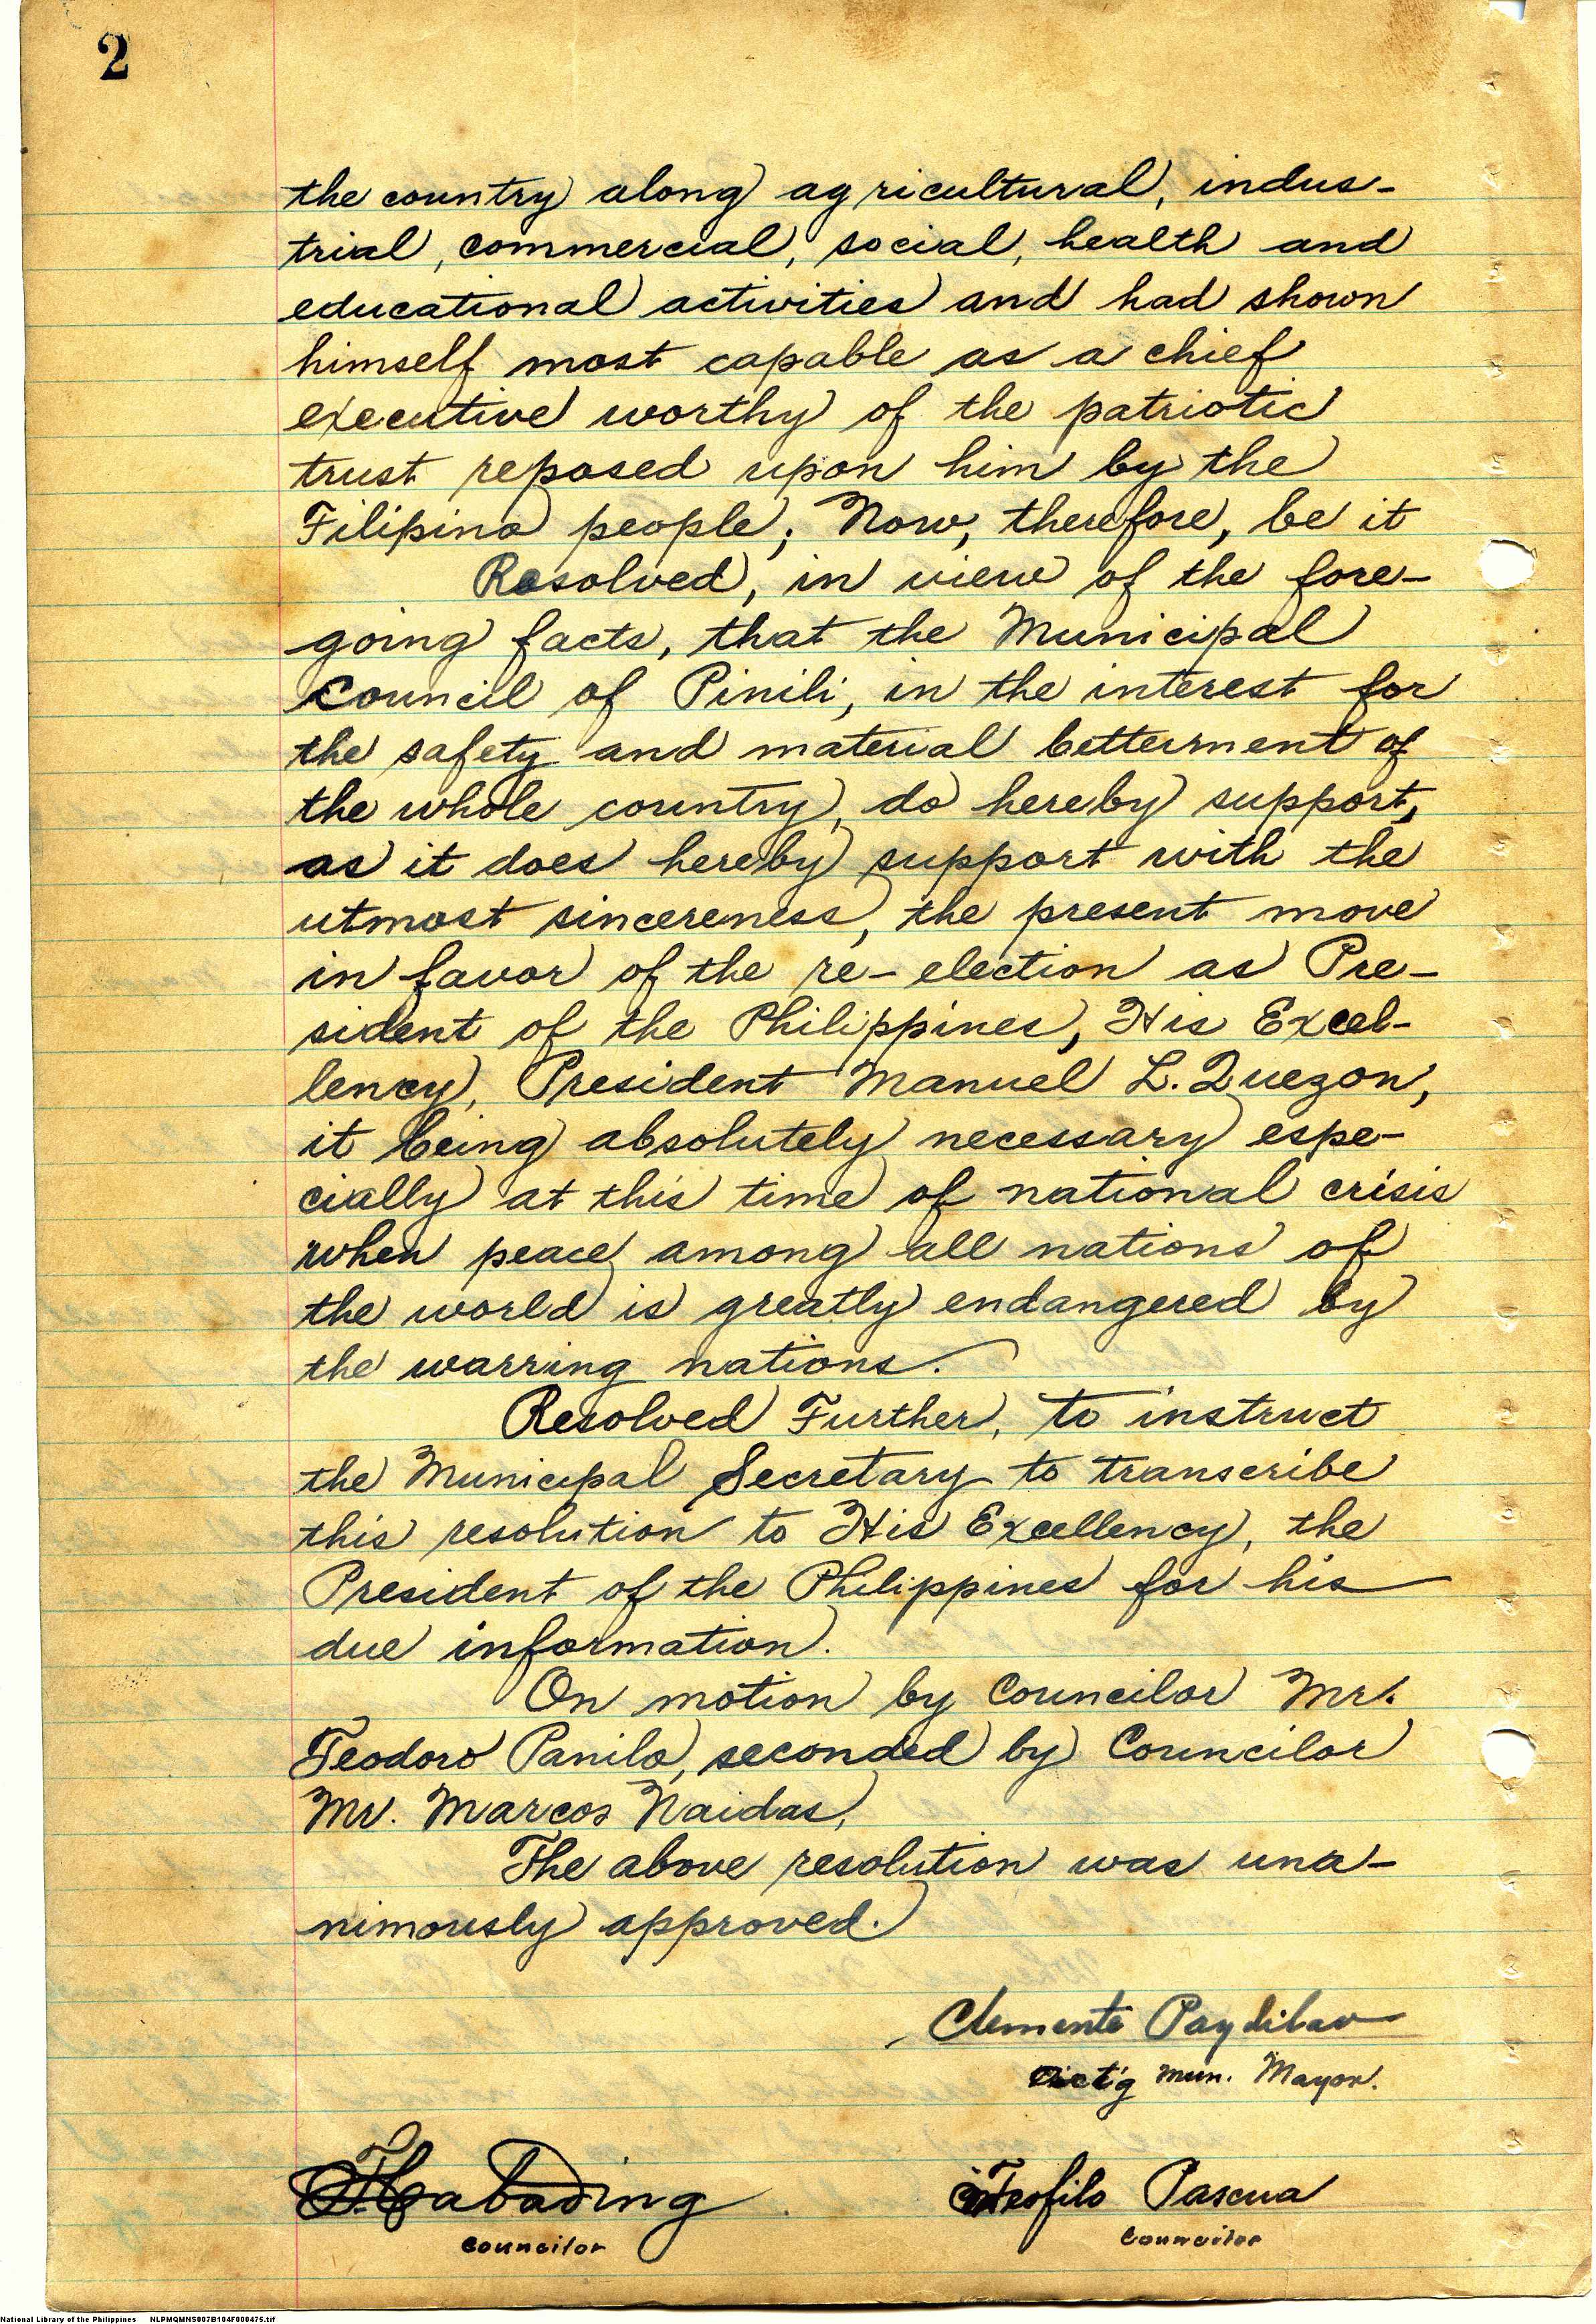 2
the country along agricultural, indus-
trial, commercial, social, health and
educational activities and had shown
himself most capable as a chief
executive worthy of the patriotic
trust reposed upon him by the
Filipino people; Now, therefore, be it
Resolved, in view of the fore-
going facts, that the Municipal
Council of Pinili, in the interest for
the safety and material betterment of
the whole country, do hereby support,
as it does hereby support with the
utmost sincereness, the present move
in favor of the re-election as Pre-
sident of the Philippines, His Excel-
lency, President Manuel L. Quezon,
it being absolutely necessary espe-
cially at this time of national crisis
when peace among all nations of
the world is greatly endangered by
the warring nations.
Resolved Further, to instruct
the Municipal Secretary to transcribe
this resolution to His Excellency, the
President of the Philippines for his
due information.
On motion by Councilor Mr.
Teodoro Panila, seconded by Councilor
Mr. Marcos Naidas,
The above resolution was una-
nimously approved.
Clemente Paydilao
Act'g Mun. Mayor.
Teofilo Pascua
Councilor
Councilor
National Library of the Philippines NLPMQMNS007B104F000475.tif